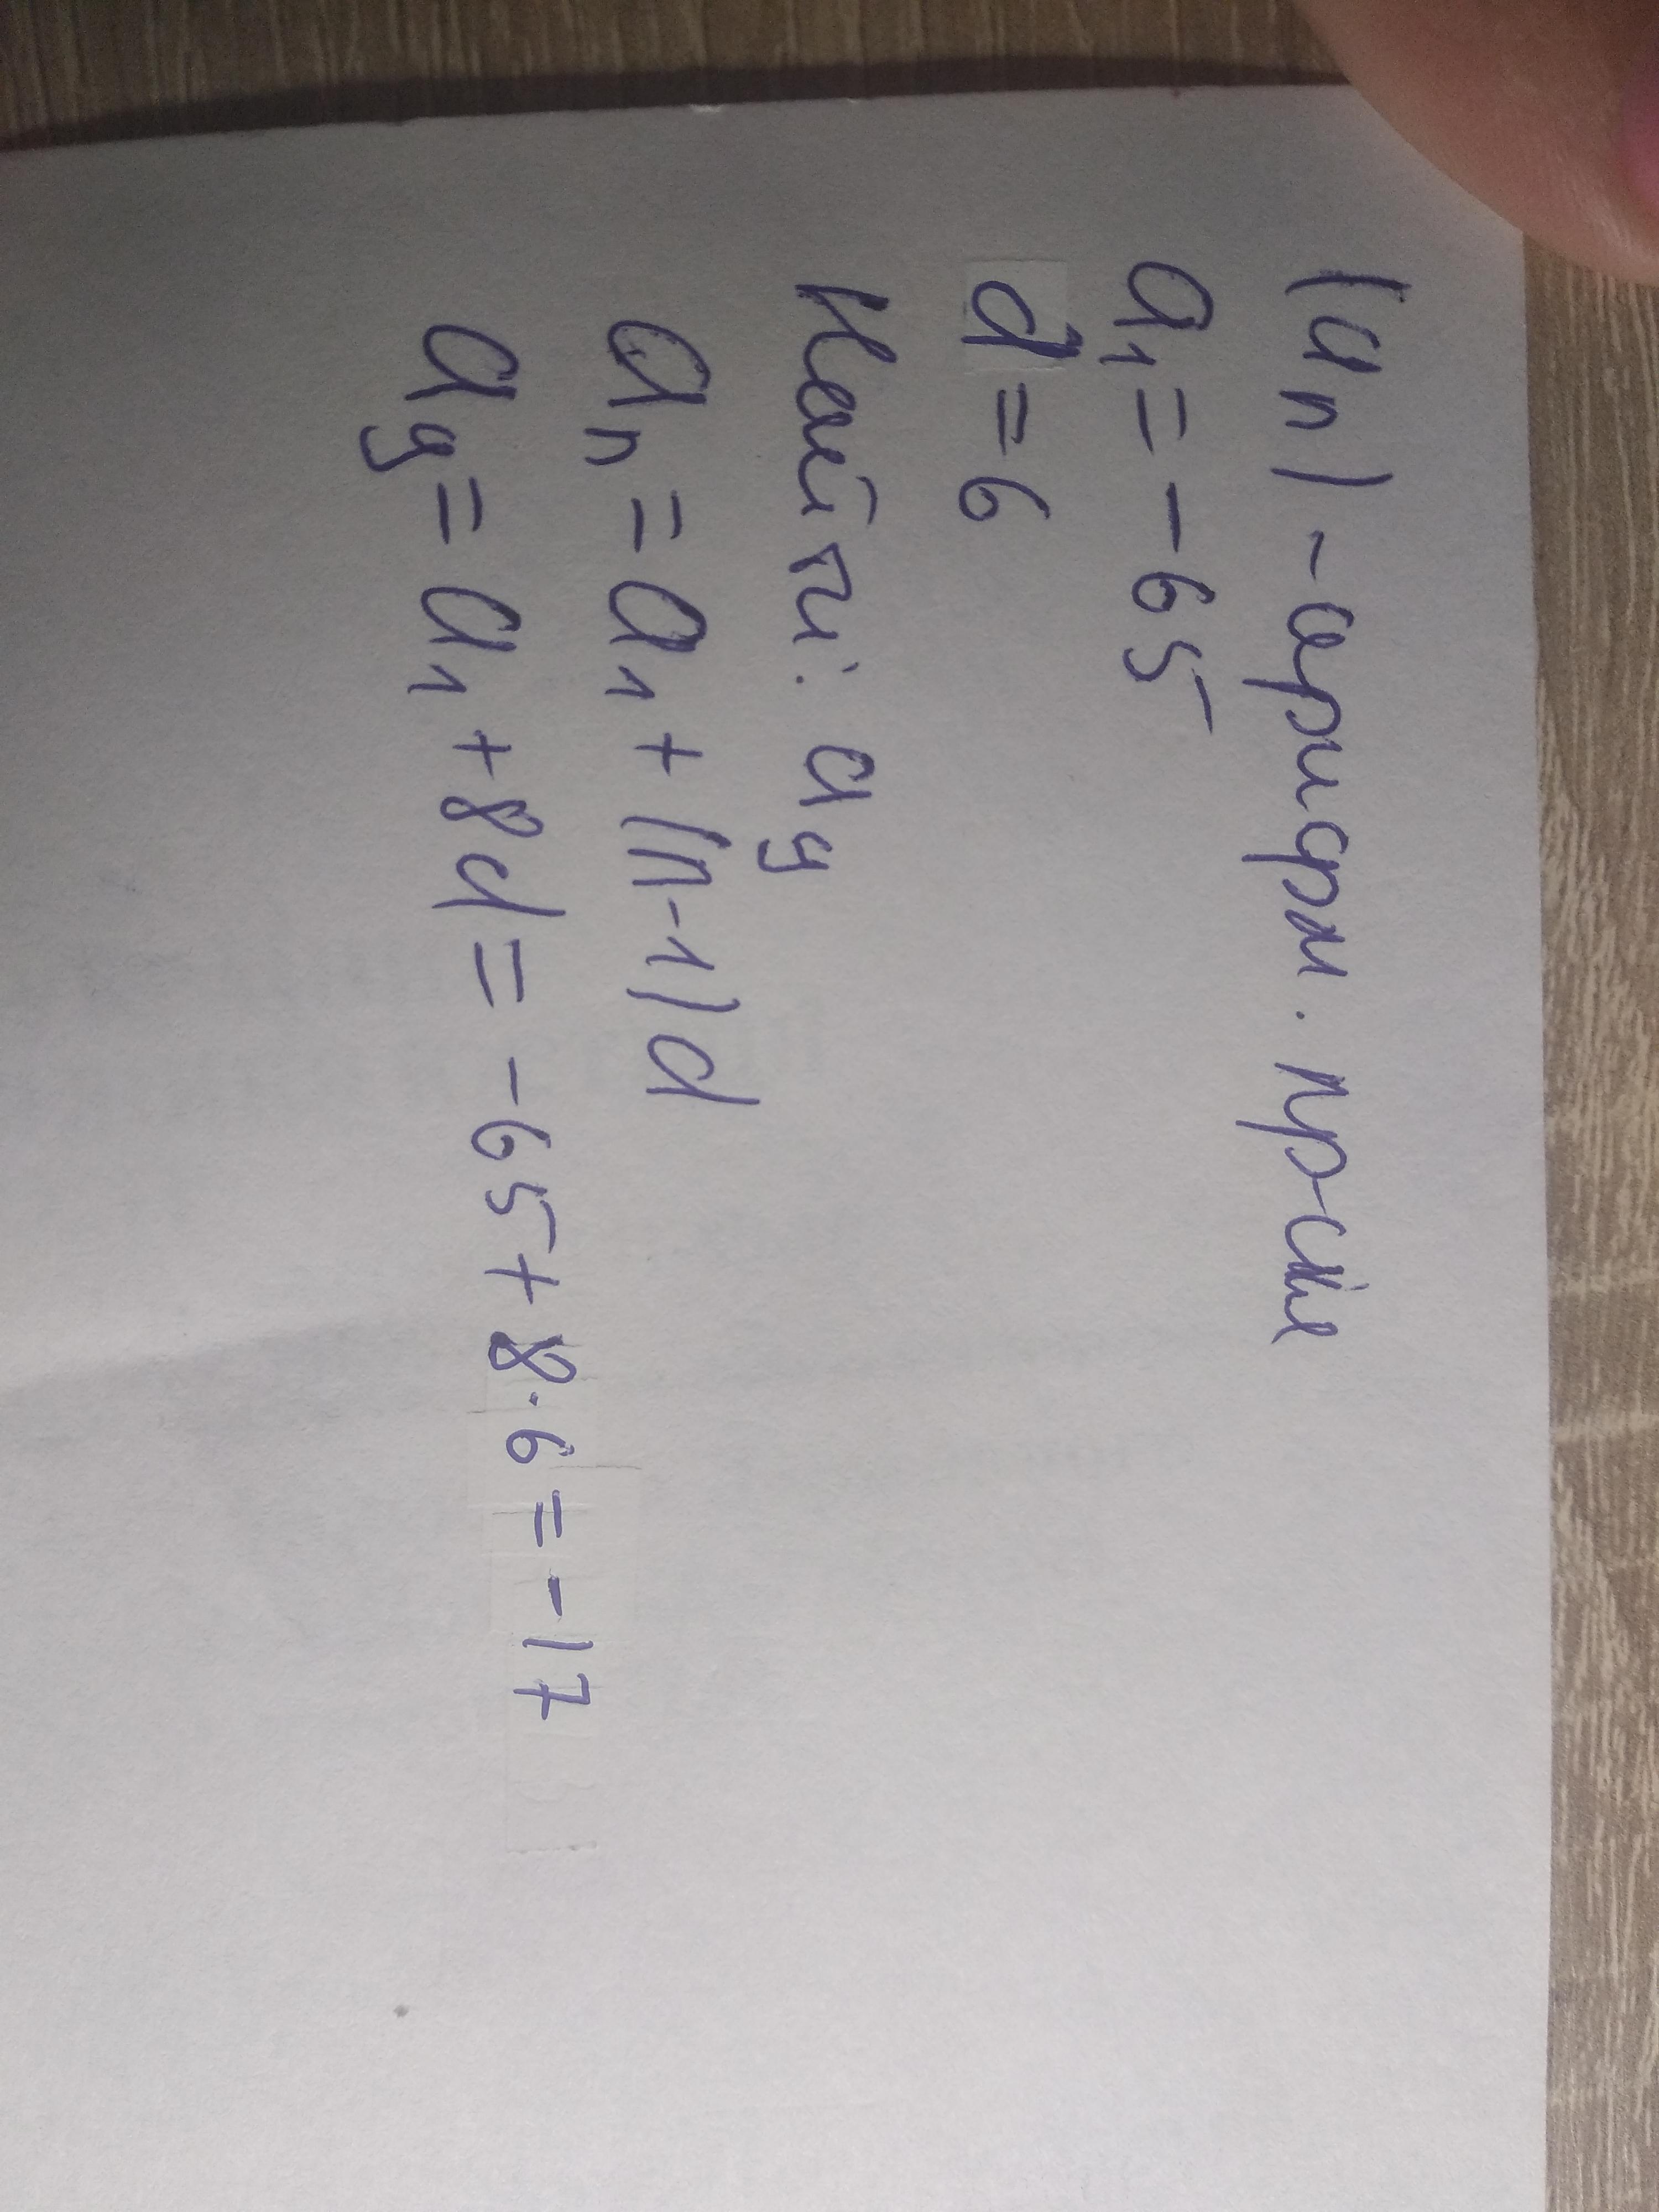 (an) - арифм. пр-сия
a1 = -65
d = 6
Найти: a9
an = a1 + (n-1)d
a9 = a1 + 8d = -65 + 8·6 = -17